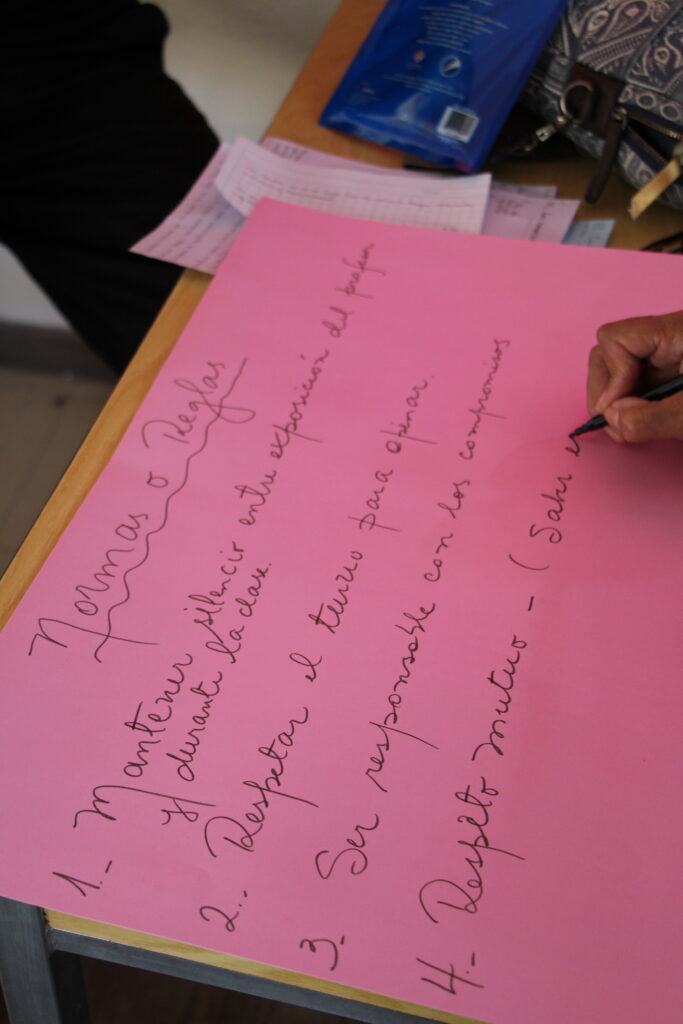 Normas o Reglas
1.- Mantener silencio entre exposición del profesor
y durante la clase.
2.- Respetar el turno para opinar.
3.- Ser responsable con los compromisos
4.- Respeto mutuo - ( Saber e